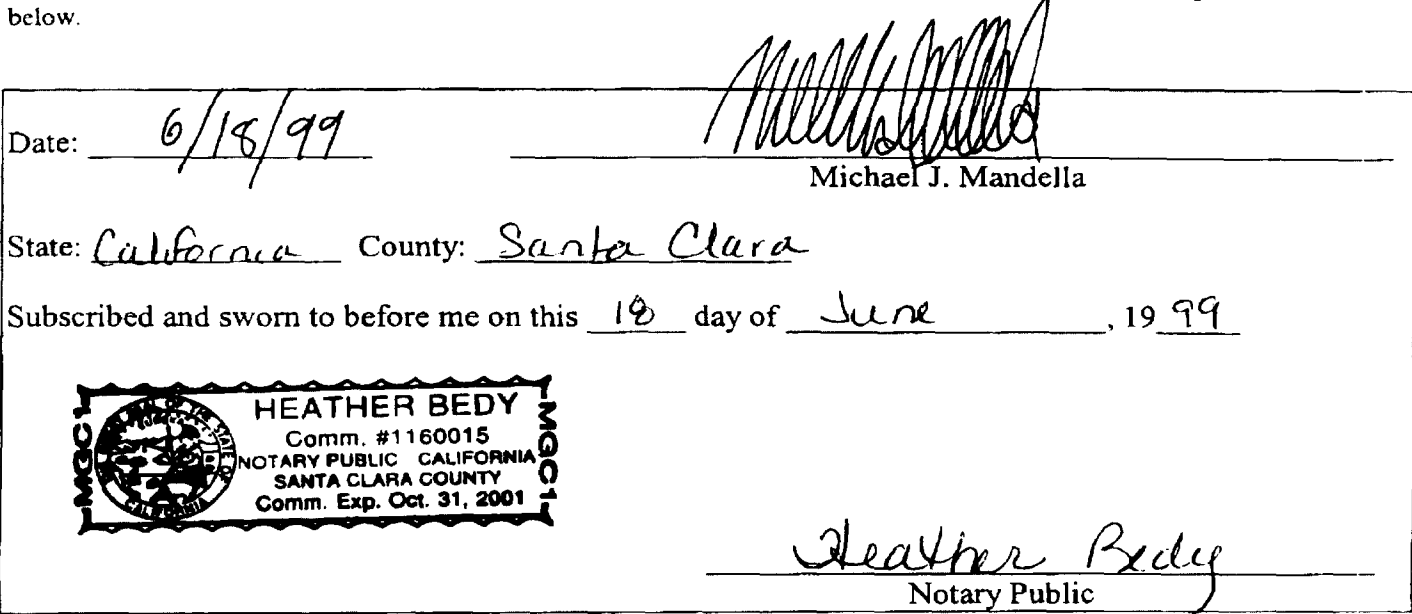 below.
Date: 6/18/99
Michael J. Mandella
State: California County: Santa Clara
Subscribed and sworn to before me on this 18 day of June, 19 99
HEATHER BEDY
Comm. #1160015
NOTARY PUBLIC CALIFORNIA
SANTA CLARA COUNTY
Comm. Exp. Oct. 31, 2001
MGC1
MGC1
Heather Bedy
Notary Public